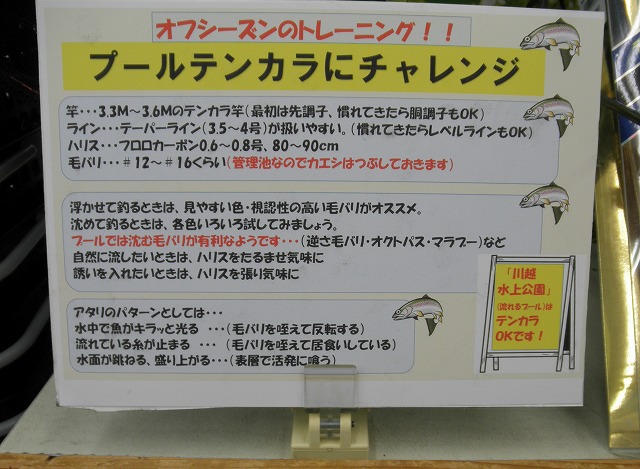 オフシーズンのトレーニング！！
プールテンカラにチャレンジ
竿・・・3.3M～3.6Mのテンカラ竿(最初は先調子、慣れてきたら胴調子もOK)
ライン・・・テーパーライン(3.5～4号)が扱いやすい。(慣れてきたらレベルラインもOK)
ハリス・・・フロロカーボン0.6～0.8号、80～90cm
毛バリ・・・＃12～＃16くらい(管理池なのでカエシはつぶしておきます)
浮かせて釣るときは、見やすい色・視認性の高い毛バリがオススメ。
沈めて釣るときは、各色いろいろ試してみましょう。
プールでは沈む毛バリが有利なようです・・・(逆さ毛バリ・オクトパス・マラブー)など
自然に流したいときは、ハリスをたるませ気味に
誘いを入れたいときは、ハリスを張り気味に
アタリのパターンとしては・・・
水中で魚がキラッと光る ・・・(毛バリを咥えて反転する)
流れている糸が止まる ・・・ (毛バリを咥えて居食いしている)
水面が跳ねる、盛り上がる・・・(表層で活発に喰う)
「川越
水上公園」
(流れるプール)は
テンカラ
OKです！